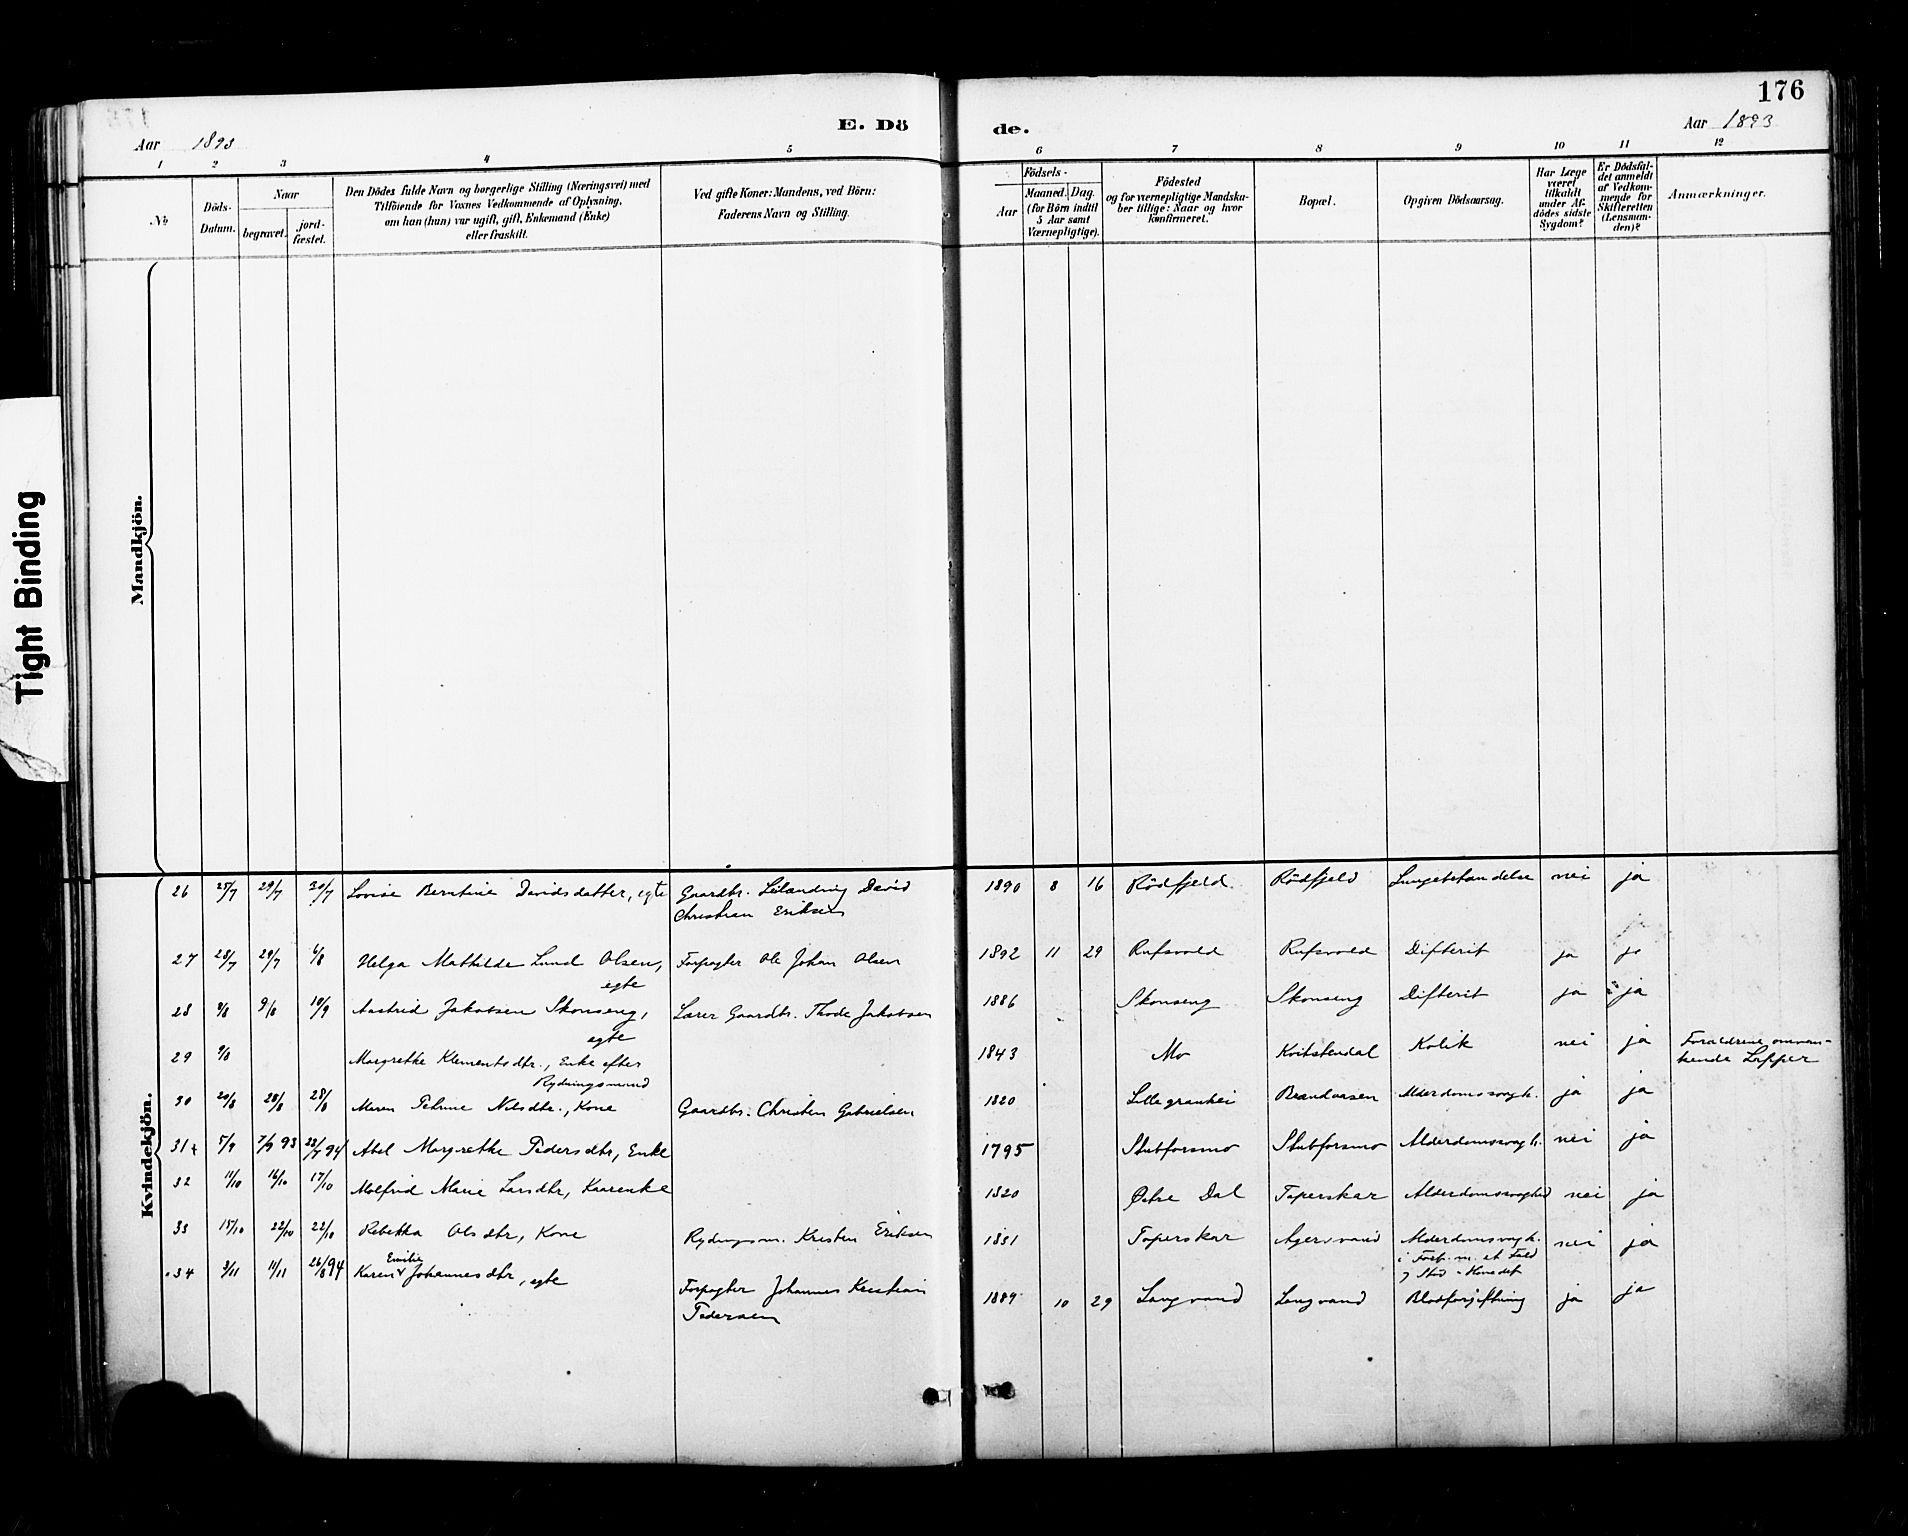 176
E. Dö
de.
Aar 1893
Aar 1893
1 2 3 4 5 6 7 8 9 10 11 12
No
Döds-
Datum.
Naar
begravet.
jord-
fæstet.
Den Dödes fulde Navn og borgerlige Stilling (Næringsvei) med
Tilföiende for Voxnes Vedkommende af Oplysning,
om han (hun) var ugift, gift, Enkemand (Enke)
eller fraskilt.
Ved gifte Koner: Mandens, ved Börn:
Faderens Navn og Stilling.
Födsels-
Aar
Maaned. Dag.
(for Börn indtil
5 Aar samt
Værnepligtige).
Födested
og for værnepligtige Mandska-
ber tillige: Naar og hvor
konfirmeret.
Bopæl.
Opgiven Dödsaarsag.
Har Læge
været
tilkaldt
under Af-
dödes sidste
Sygdom?
Er Dödsfal-
det anmeldt
af Vedkom-
mende for
Skifteretten
(Lensman-
den)?
Anmærkninger.
Mandkjön.
Kvindekjön.
Tight Binding
26 25/7 29/7 30/7 Lovise Berntine Davidsdatter, egte Gaardbr. David 1890 8 16 Rödfjeld Rödfjeld Lungebetændelse nei ja
Christian Eriksen
27 28/7 29/7 6/8 Helga Mathilde Lund Olsen, Forpagter Ole Johan Olsen 1892 11 29 Rufsvold Rufsvold Difterit ja ja
egte
28 9/8 10/9 Aastrid Jakobsen Skonseng, Lærer Gaardbr. Thode Jakobsen 1886 Skonseng Skonseng Difterit ja ja
egte
29 9/8 Margrethe Klementsdtr., Enke efter 1843 Mo Kvitstendal Kolik nei ja Forældrene omvan-
Rydningsmand kende Lapper
30 20/8 28/8 28/8 Maren Nilsdtr., Kone Gaardbr. Christen Gabrielsen 1820 Lillegranhei Brandaasen Alderdomssvagh. ja ja
31 5/9 7/9 93 94 Abel Margrethe Pedersdtr, Enke 1795 Stubforsmo Stubforsmo Alderdomssvagh. nei ja
32 11/10 16/10 17/10 Molfrid Marie Larsdtr, Kaarenke 1820 Östre Dal Taperskar Alderdomssvaghed nei ja
33 15/10 22/10 22/10 Rebekka Olsdtr, Kone Rydningsm. Kristen Eriksen 1831 Taperskar Agersvand Alderdomssvagh. nei ja
i Forb. m. et Fald
34 3/11 11/11 26/8 94 Karen Emilie Johannesdtr, egte Forpagter Johannes Kristian 1889 10 29 Langvand Langvand Blodforgiftning ja ja
Pedersen